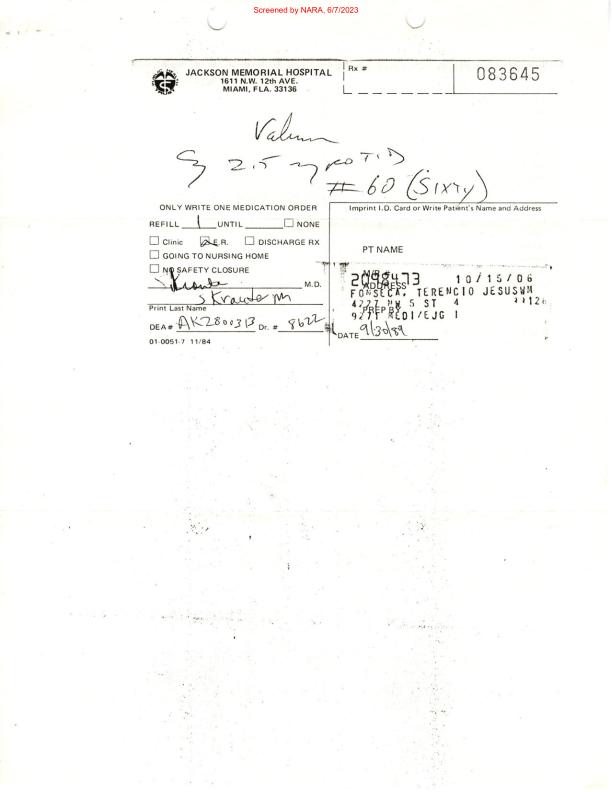 Screened by NARA, 6/7/2023
JACKSON MEMORIAL HOSPITAL
1611 N.W. 12th AVE.
MIAMI, FLA. 33136
Rx #
083645
Valium
2.5 mg po TID
#60 (Sixty)
ONLY WRITE ONE MEDICATION ORDER
REFILL 1 UNTIL NONE
Clinic E.R. DISCHARGE RX
GOING TO NURSING HOME
NO SAFETY CLOSURE
M.D.
Print Last Name
DEA # AK2800313 Dr. # 8622
01-0051-7 11/84
Imprint I.D. Card or Write Patient's Name and Address
PT NAME
M/R #
2098473 10/15/06
ADDRESS
FONSECA, TERENCIO JESUS WM
4227 NW 5 ST 4
PREP BY
9271 MEDI/EJG 1
DATE 9/30/89